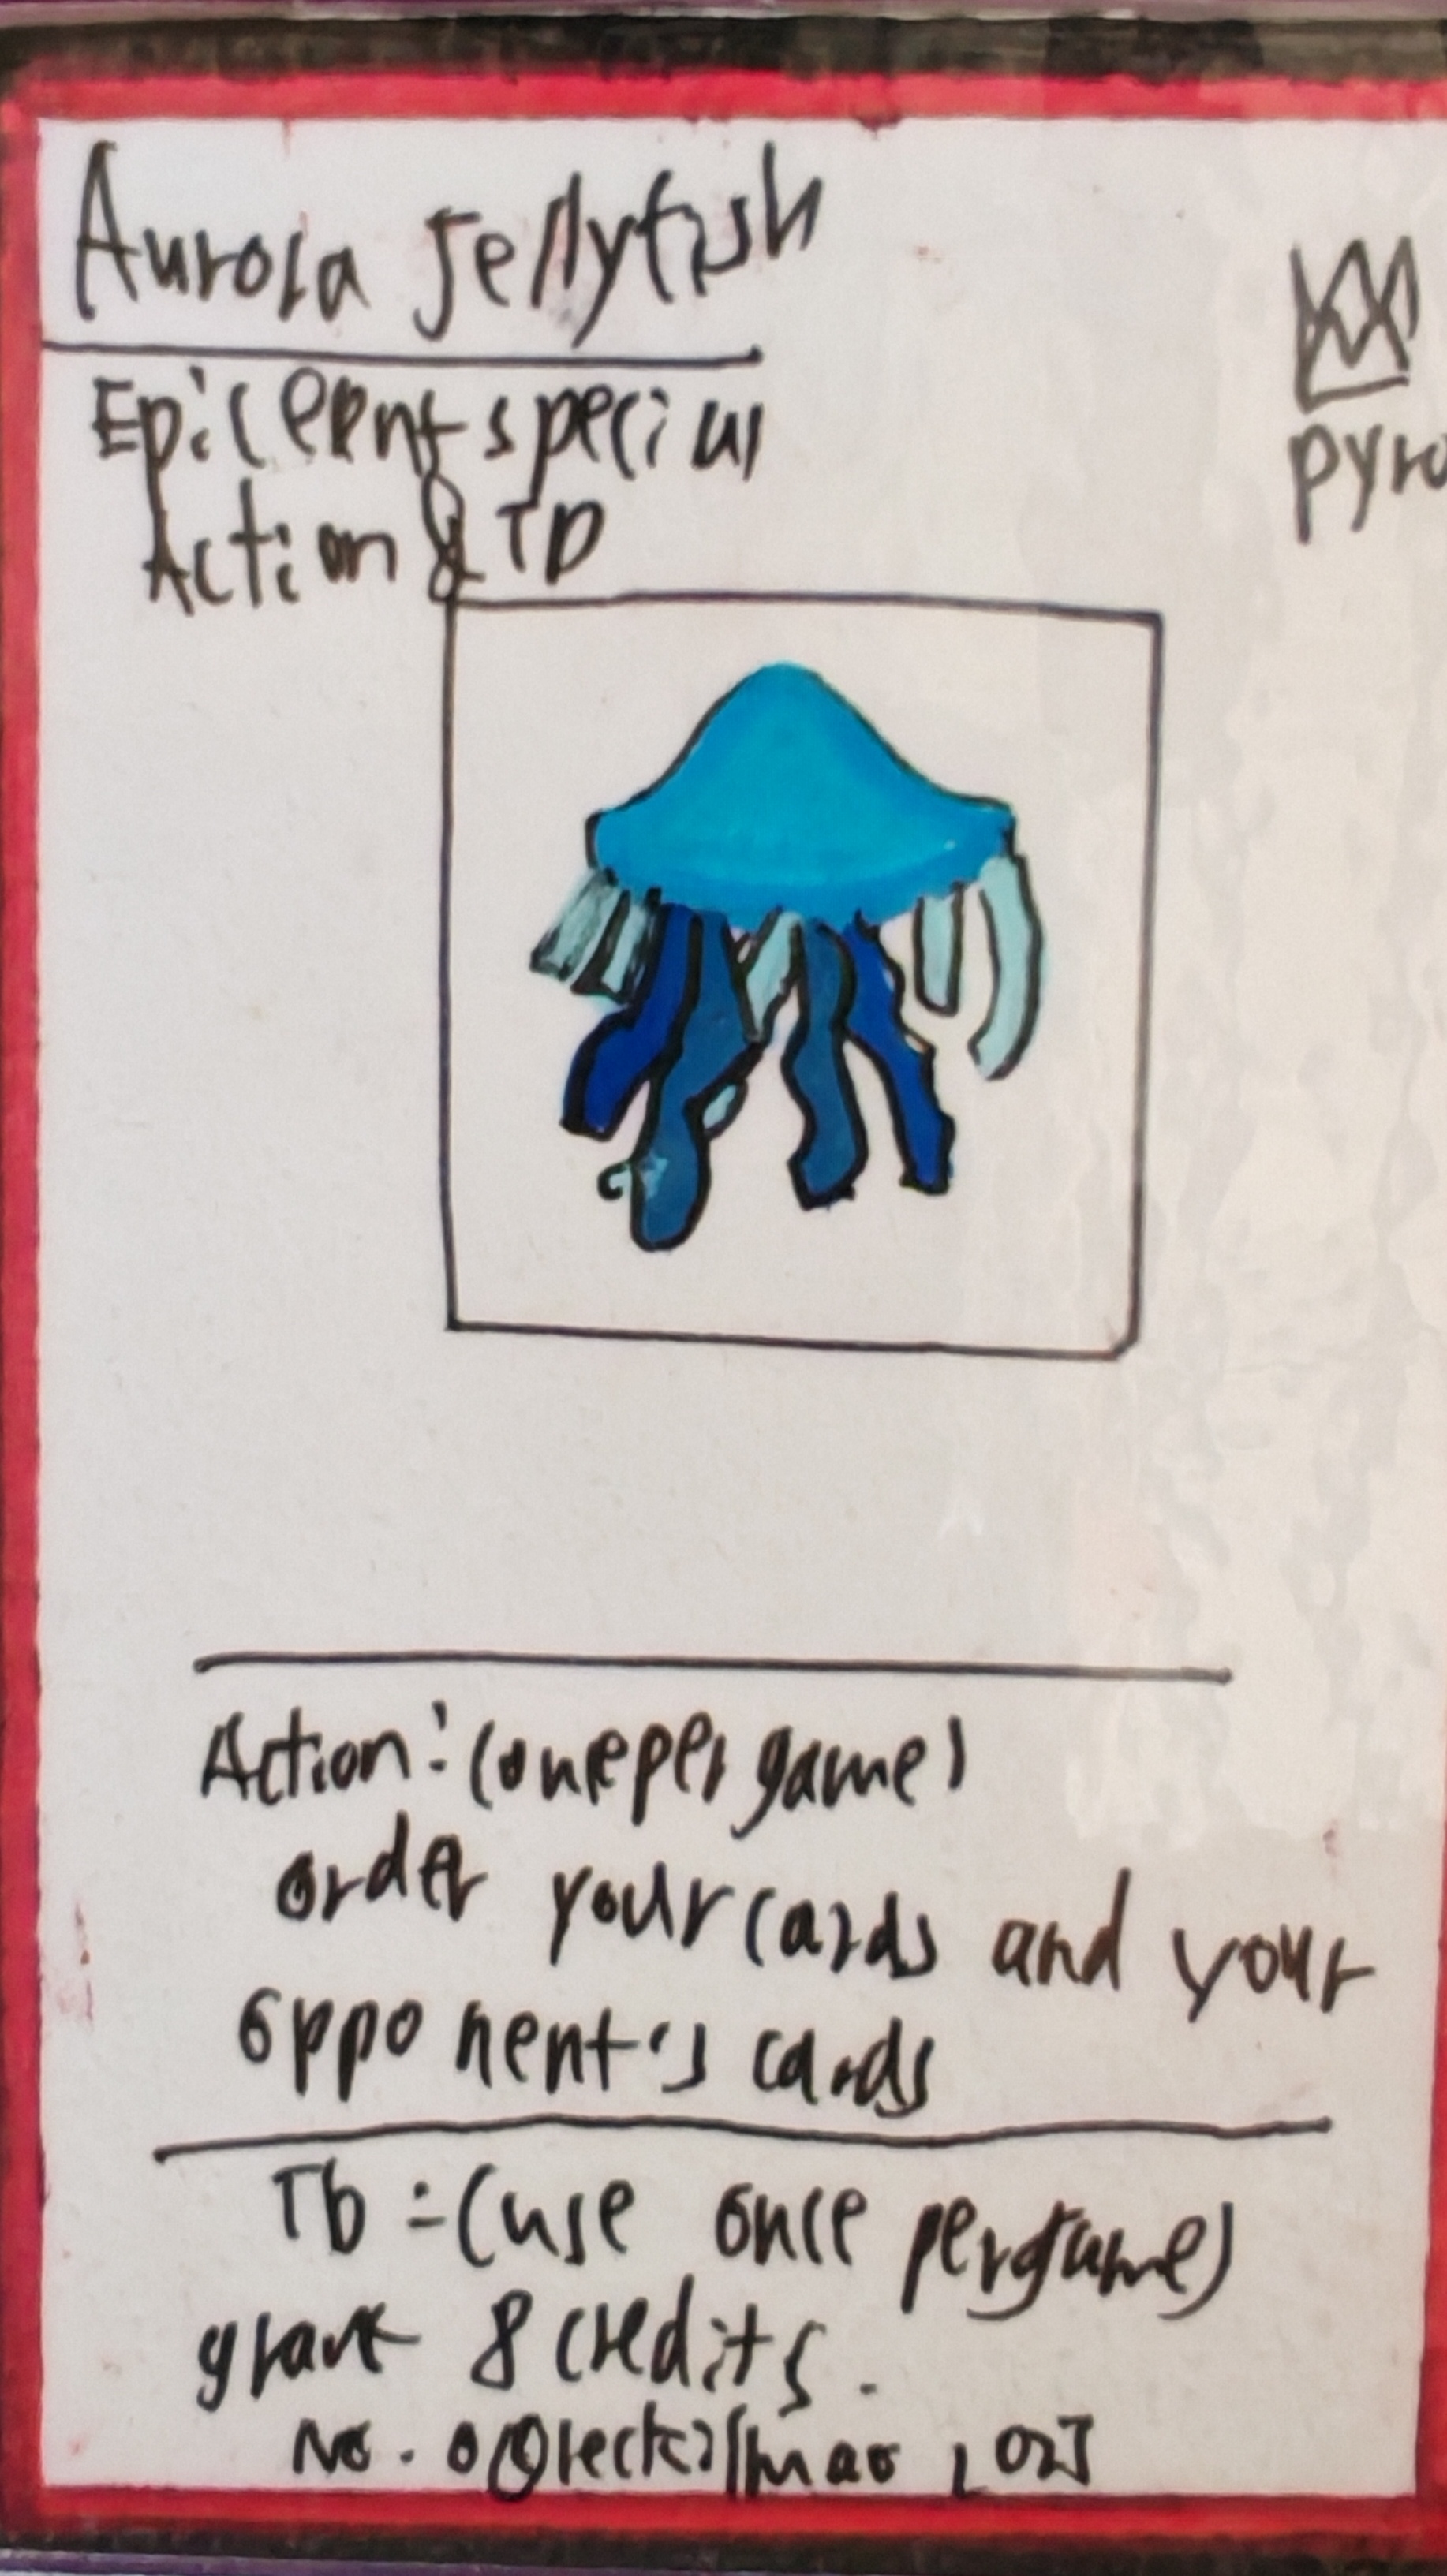 Aurora Jellyfish
pyro
Epic event special
Action & TD
Action: (one per game)
order your cards and your
opponent's cards
Tb : (use once per game)
grant 8 credits.
No.